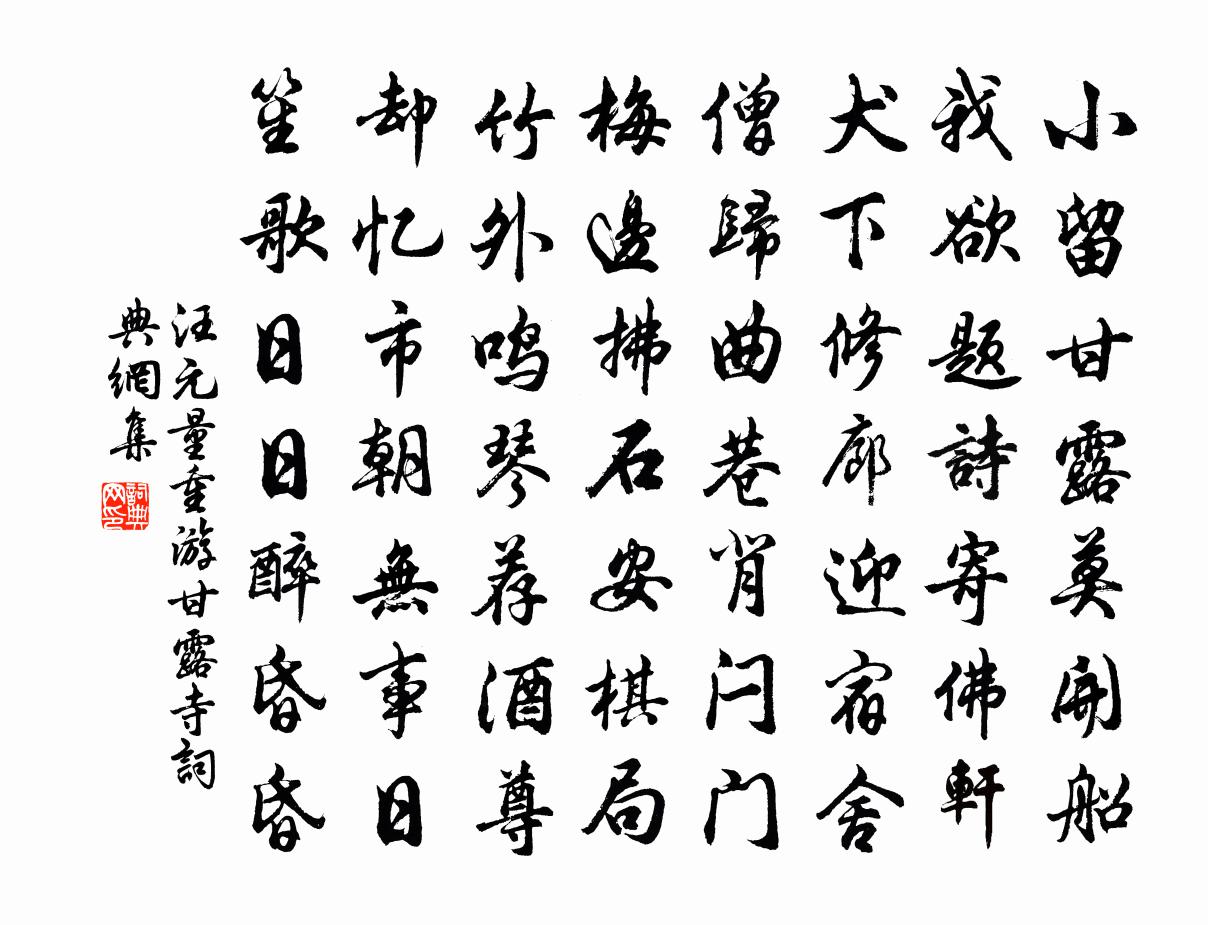 小留甘露莫開船
我欲題詩寄佛軒
犬下修廊迎宿舍
僧歸曲巷肖闩门
梅邊拂石安棋局
竹外鸣琴荐酒尊
却忆市朝無事日
笙歌日日醉昏昏
汪元量重游甘露寺詞
典網集
詞典网印